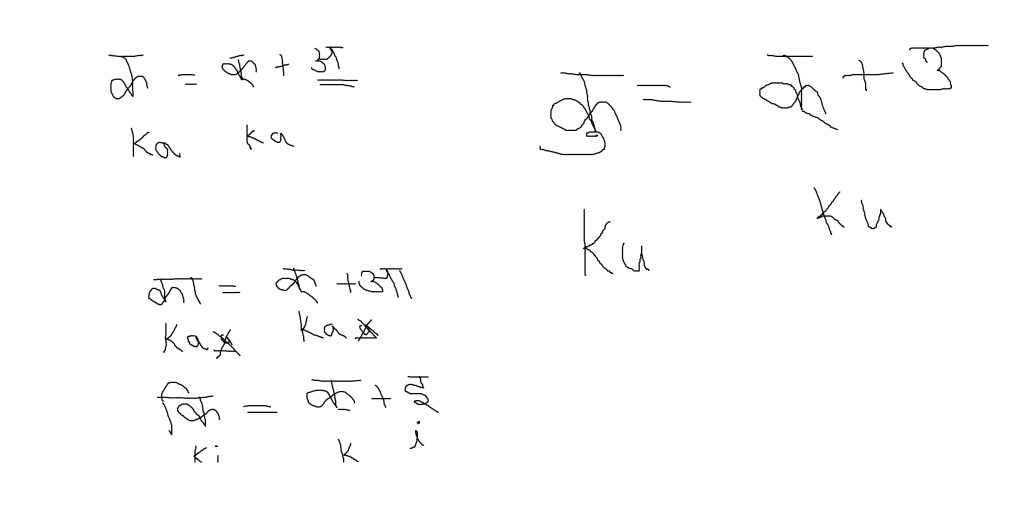 क = क् + अ
Ka ka
कु = क् + उ
Ku Ku
का = क् + आ
Ka Ka
कि = क् + इ
Ki K i